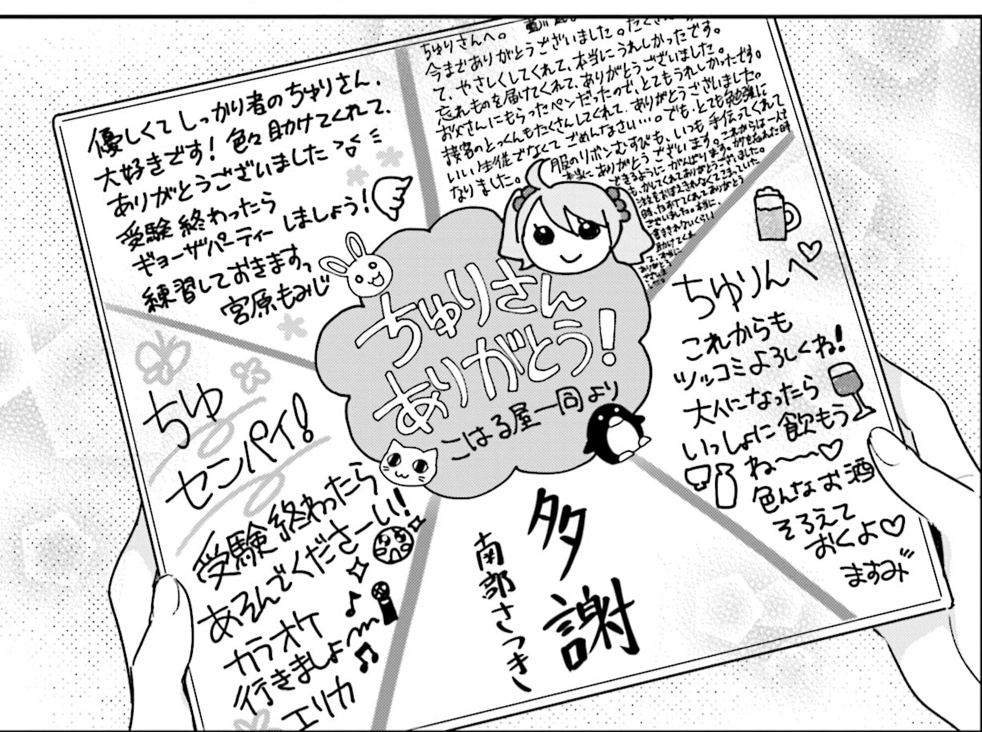 優しくてしっかり者のちゅりさん、
大好きです！色々助けてくれて、
ありがとうございました
受験終わったら
ギョーザパーティーしましょう！
練習しておきますっ
宮原もみじ
ちゅりさんへ。
今までありがとうございました。たくさん
て、やさしくしてくれて、本当にうれしかったです。
忘れものを届けてくれて、ありがとうございました。
お父さんにもらったペンだったので、とてもうれしかったです。
接客のとっくんもたくさんしてくれて、ありがとうございました。
いい生徒でなくてごめんなさい…。でも、とても勉強に
なりました。服のリボンむすびも、いつも手伝ってくれて
本当にありがとうございます。これからは一人で
できるようにがんばります。
ちゅりさん
ありがとう！
こはる屋一同より
ちゅりんへ♡
これからも
ツッコミよろしくね！
大人になったら
いっしょに飲もう
ね〜〜♡
色んなお酒
そろえて
おくよ♡
ますみ
ちゅ
センパイ！
受験終わったら
あそんでくださーい！
カラオケ
行きましょ
エリカ
多謝
南部さつき